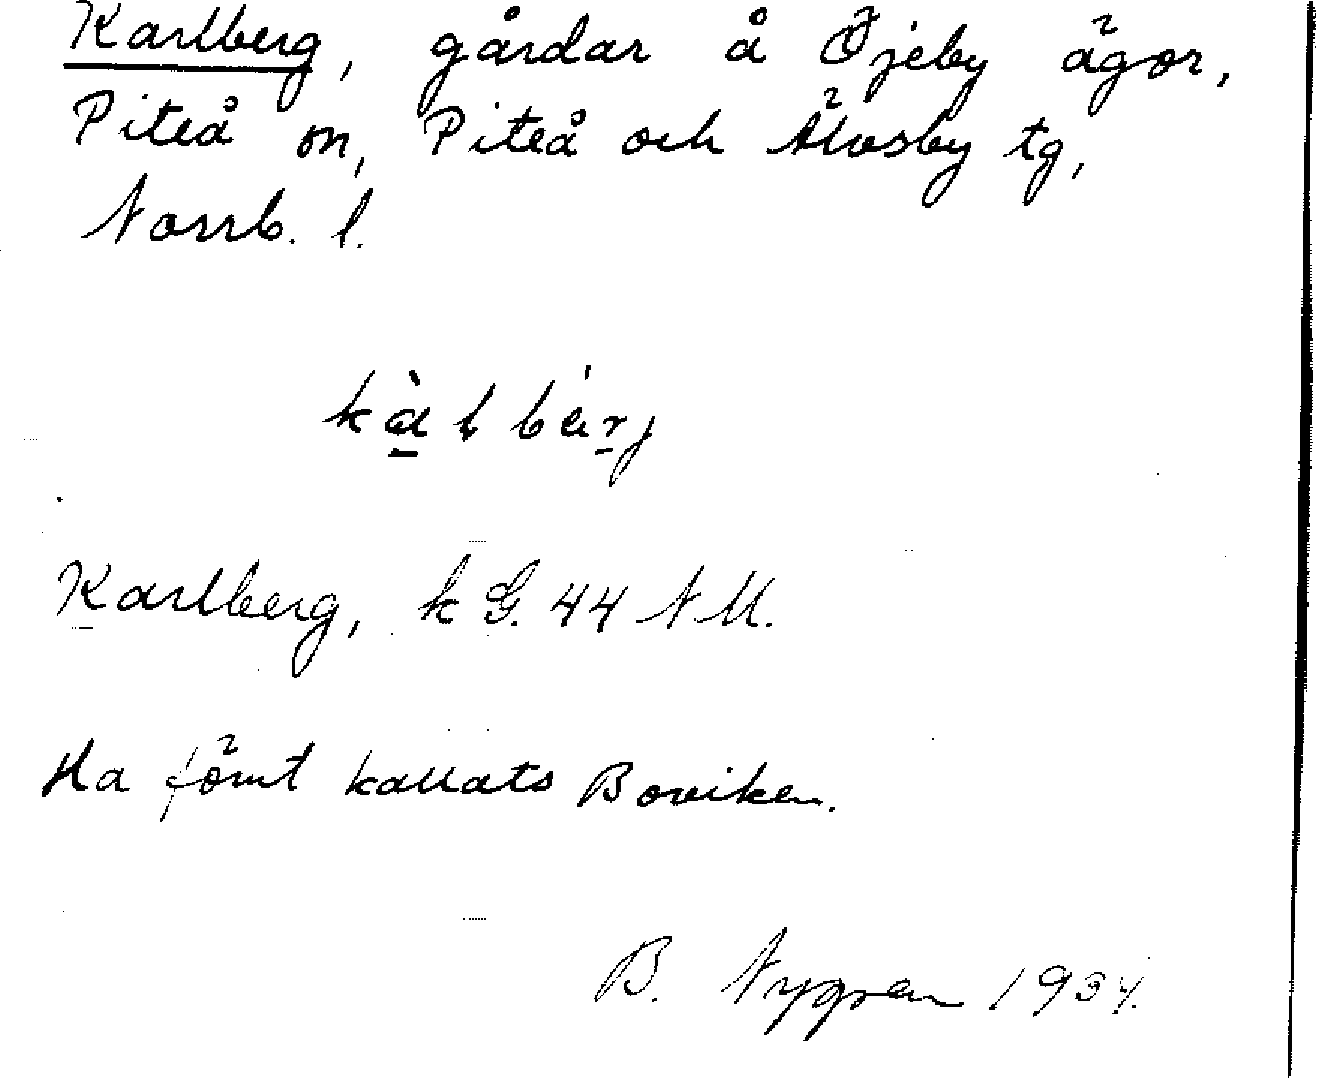 Karlberg, gårdar å Öjeby ägor,
Piteå sn, Piteå och Älvsby tg,
Norrb. l.
Karlberg, k G. 44 NM.
Ha förut kallats Boviken.
B. Nygren 1934.